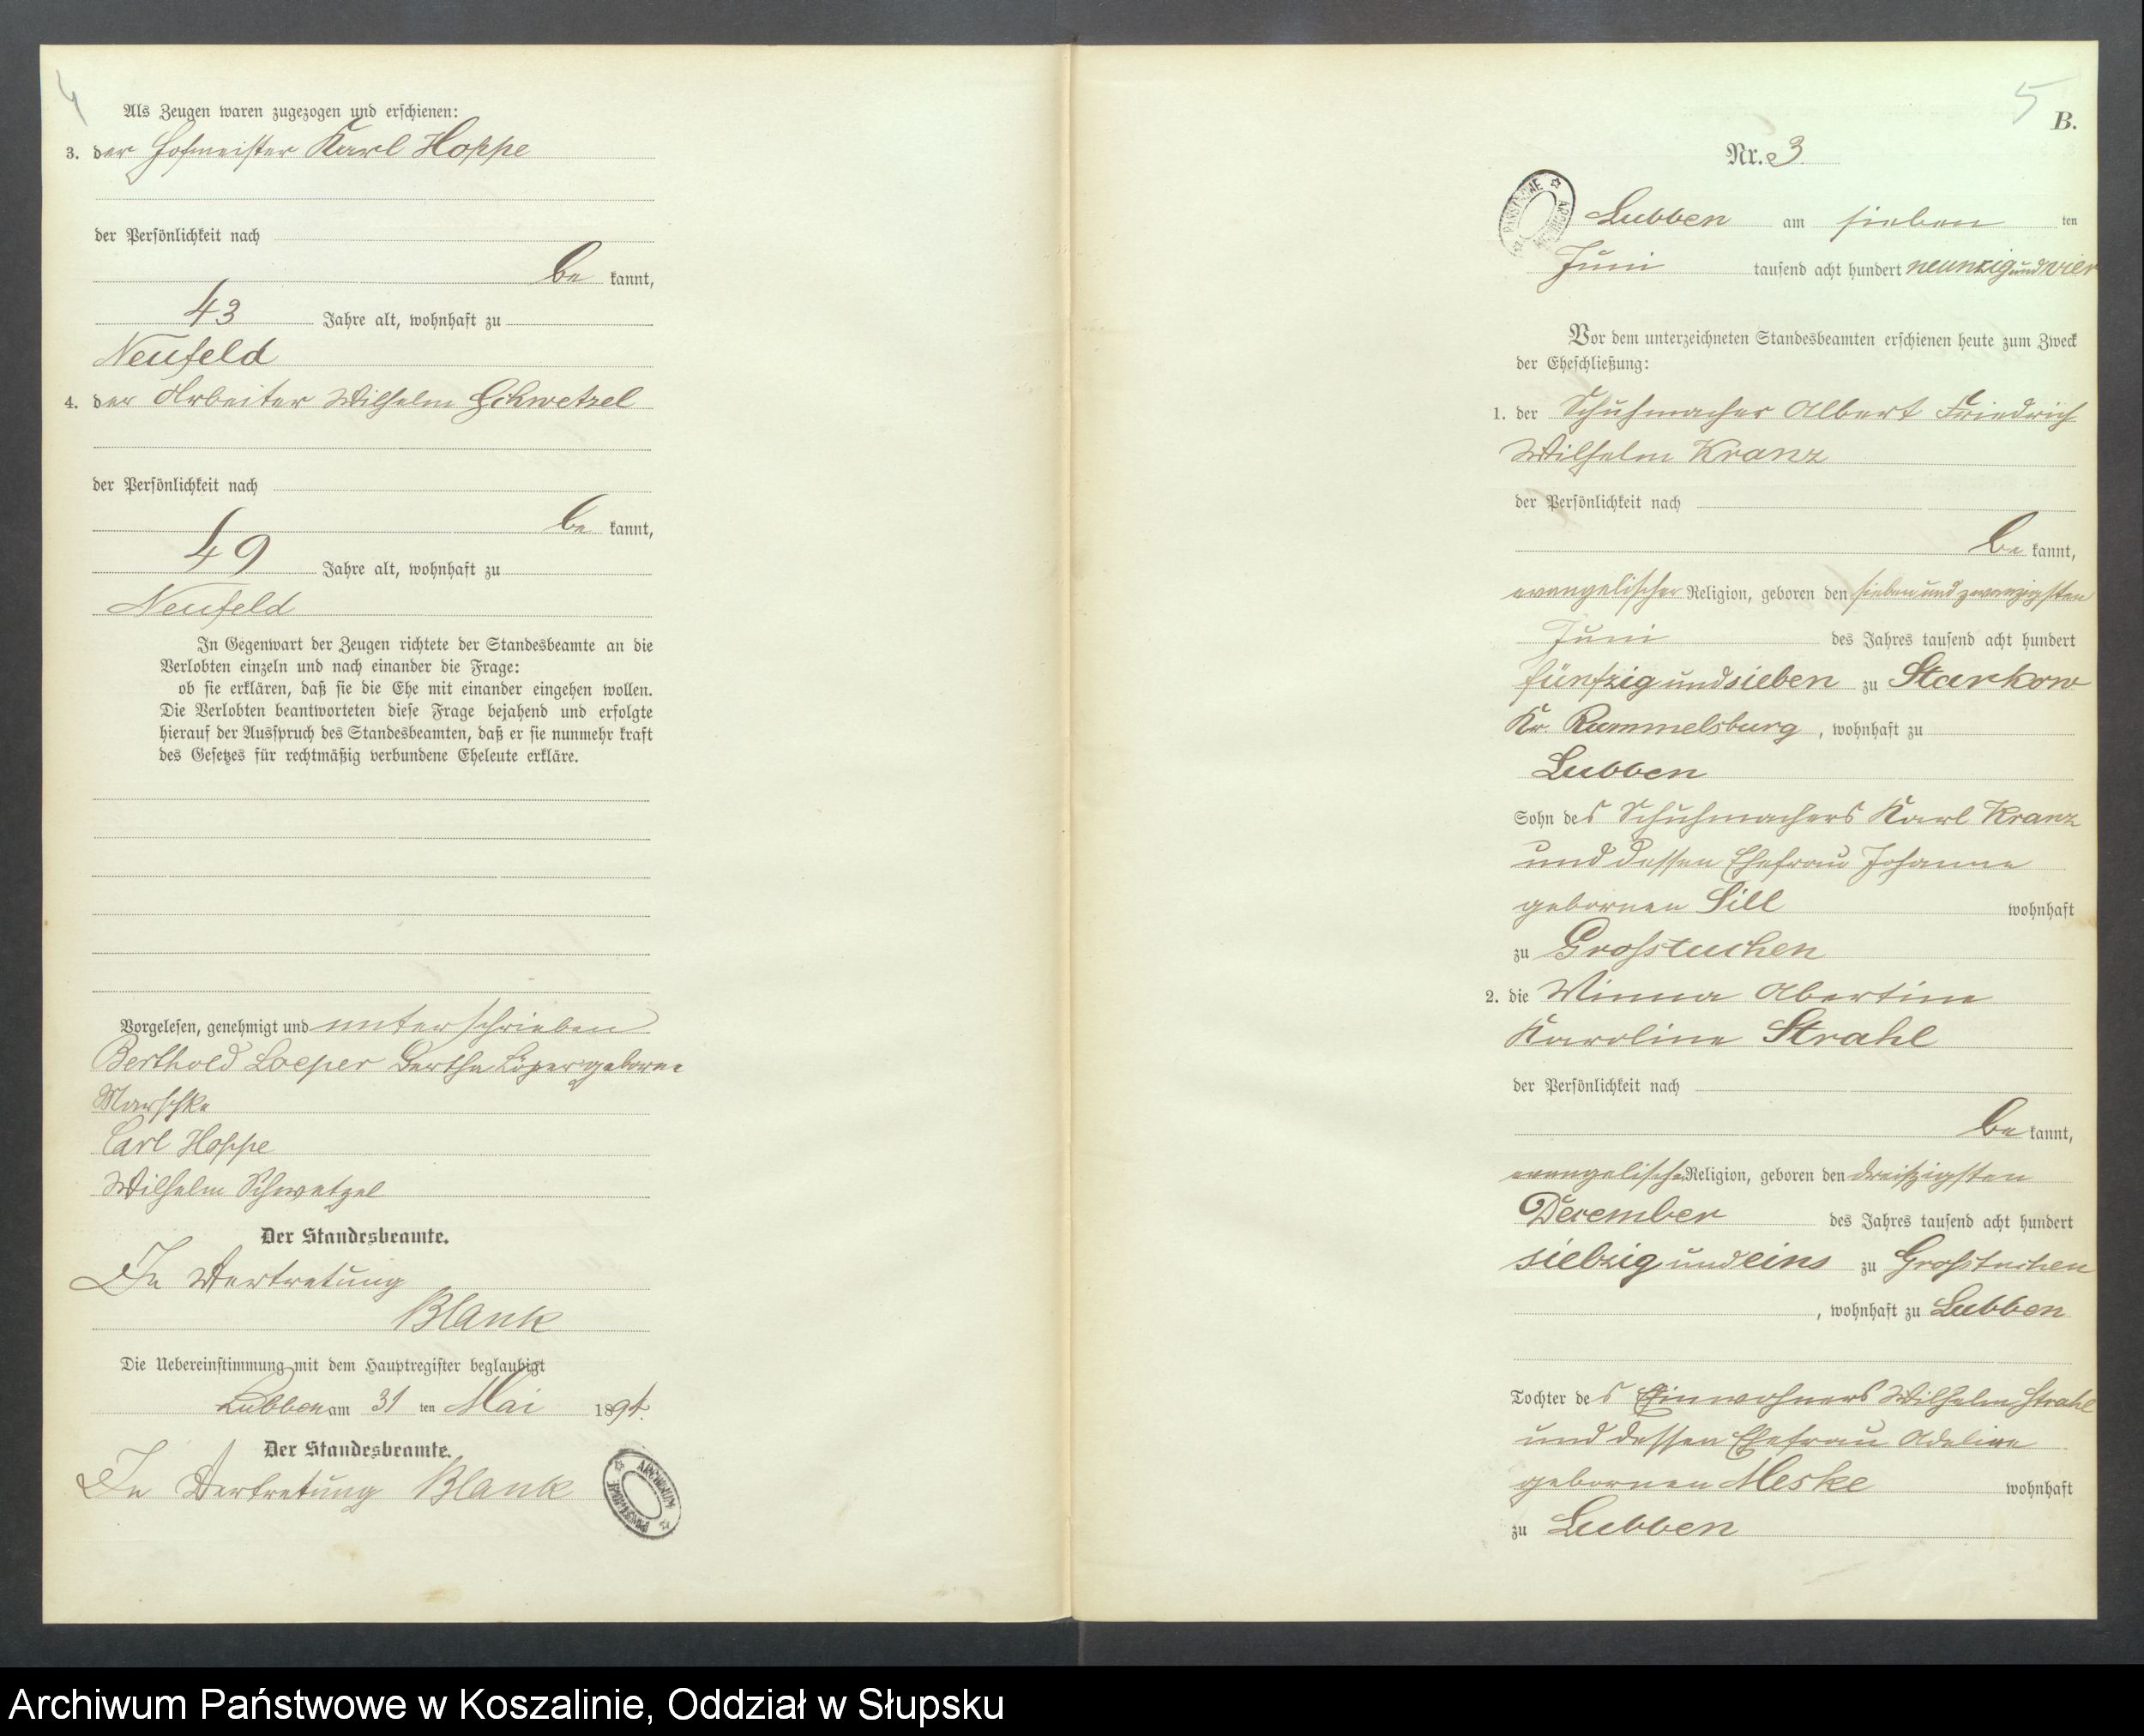 4
Als Zeugen waren zugezogen und erschienen:
3. der Hofmeister Karl Hoppe
der Persönlichkeit nach
be kannt,
43 Jahre alt, wohnhaft zu
Neufeld
4. der Arbeiter Wilhelm Schwetzel
der Persönlichkeit nach
be kannt,
49 Jahre alt, wohnhaft zu
Neufeld
In Gegenwart der Zeugen richtete der Standesbeamte an die
Verlobten einzeln und nach einander die Frage:
ob sie erklären, daß sie die Ehe mit einander eingehen wollen.
Die Verlobten beantworteten diese Frage bejahend und erfolgte
hierauf der Ausspruch des Standesbeamten, daß er sie nunmehr kraft
des Gesetzes für rechtmäßig verbundene Eheleute erkläre.
Vorgelesen, genehmigt und unterschrieben
Berthold Loeper Bertha Löper geborne
Marschke
Carl Hoppe
Wilhelm Schwetzel
Der Standesbeamte.
In Vertretung
Blank
Die Uebereinstimmung mit dem Hauptregister beglaubigt
Lubben am 31 ten Mai 1894.
Der Standesbeamte.
In Vertretung Blank
ARCHIWUM PAŃSTWOWE
5
B.
Nr. 3
Lubben am sieben ten
Juni tausend acht hundert neunzig und vier
Vor dem unterzeichneten Standesbeamten erschienen heute zum Zweck
der Eheschließung:
1. der Schuhmacher Albert Friedrich
Wilhelm Kranz
der Persönlichkeit nach
be kannt,
evangelischer Religion, geboren den sieben und zwanzigsten
Juni des Jahres tausend acht hundert
fünfzig und sieben zu Starkow
Kr. Rummelsburg, wohnhaft zu
Lubben
Sohn des Schuhmachers Karl Kranz
und dessen Ehefrau Johanne
gebornen Sill wohnhaft
zu Grosstuchen
2. die Minna Abertine
Karoline Strahl
der Persönlichkeit nach
be kannt,
evangelischer Religion, geboren den dreißigsten
December des Jahres tausend acht hundert
siebzig und eins zu Grosstuchen
, wohnhaft zu Lubben
Tochter des Einwohners Wilhelm Strahl
und dessen Ehefrau Adeline
gebornen Meske wohnhaft
zu Lubben
Archiwum Państwowe w Koszalinie, Oddział w Słupsku